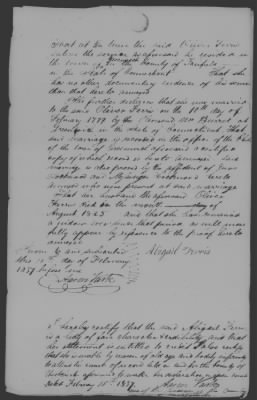 That at the time the said Oliver Ferris
entered the service as aforesaid he resided in
the town of Greenwich in the County of Fairfield
in the State of Connecticut That she
has no other documentary evidence of his service
than that hereto annexed
She further declares that she was married
to the said Oliver Ferris on the 11th day of
February 1779 by the Reverend Mr
Greenwich in the State of Connecticut That
said marriage is recorded in the office of the Clerk
of the town of Greenwich aforesaid a certified
copy of which record is hereto annexed Said
marriage is also proved by the affidavit of
Lockwood and Lockwood hereto
annexed who was present at said marriage
That her husband the aforesaid Oliver
Ferris died on the month day of
August 1825 and that she has remained
a widow ever since that period as will more
fully appear by reference to the proof hereto
annexed
Sworn to and subscribed
this 15th day of February
1837 before me
Abigail Ferris
Aaron Vark
I hereby certify that the said Abigail Ferris
is a lady of fair character & credibility and that
her statement is entitled to
that she is unable by reason of old age and bodily infirmity
to attend the court of record in and for the county of
her declaration
Dated February 15th 1837.
Aaron Vark
one of the